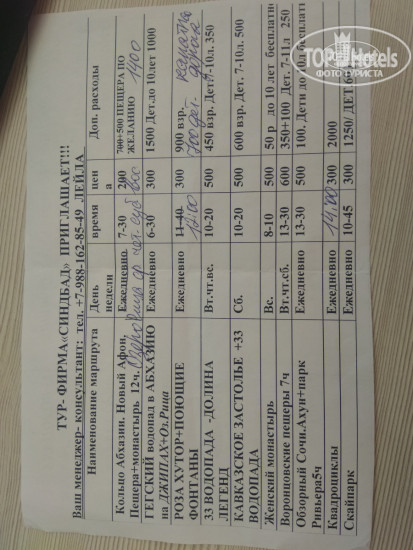 ТУР- ФИРМА«СИНДБАД» ПРИГЛАШАЕТ!!!
Ваш менеджер- консультант: тел. +7-988-162-85-49 ЛЕЙЛА
Наименование маршрута День недели время цена Доп. расходы
Кольцо Абхазии, Новый Афон, Ежедневно 7-30 200 700+500 ПЕЩЕРА ПО
Пещера+монастырь 12ч. ЖЕЛАНИЮ 1400
ГЕГСКИЙ водопад в АБХАЗИЮ Ежедневно 6-30 300 1500 Дет.до 10лет 1000
на ДЖИПАХ+Оз.Рица
РОЗА ХУТОР+ПОЮЩИЕ Ежедневно 11-40 300 900 взр.
ФОНТАНЫ 12:00 700 дет.
33 ВОДОПАДА -ДОЛИНА Вт.чт.вс. 10-20 500 450 взр. Дет.7-10л. 350
ЛЕГЕНД
КАВКАЗСКОЕ ЗАСТОЛЬЕ +33 Сб. 10-20 500 600 взр. Дет. 7-10л. 500
ВОДОПАДА
Женский монастырь Вс. 8-10 500 50 р до 10 лет бесплатно
Воронцовские пещеры 7ч Вт.чт.сб. 13-30 600 350+100 Дет. 7-11л 250
Обзорный Сочи,Ахун+парк Ежедневно 13-30 500 100. Дети до 10л бесплатно
Ривьера5ч
Квадроциклы Ежедневно 14.00 300 2000
Скайпарк Ежедневно 10-45 300 1250/ ДЕТ.
TopHotels
ФОТО ТУРИСТА